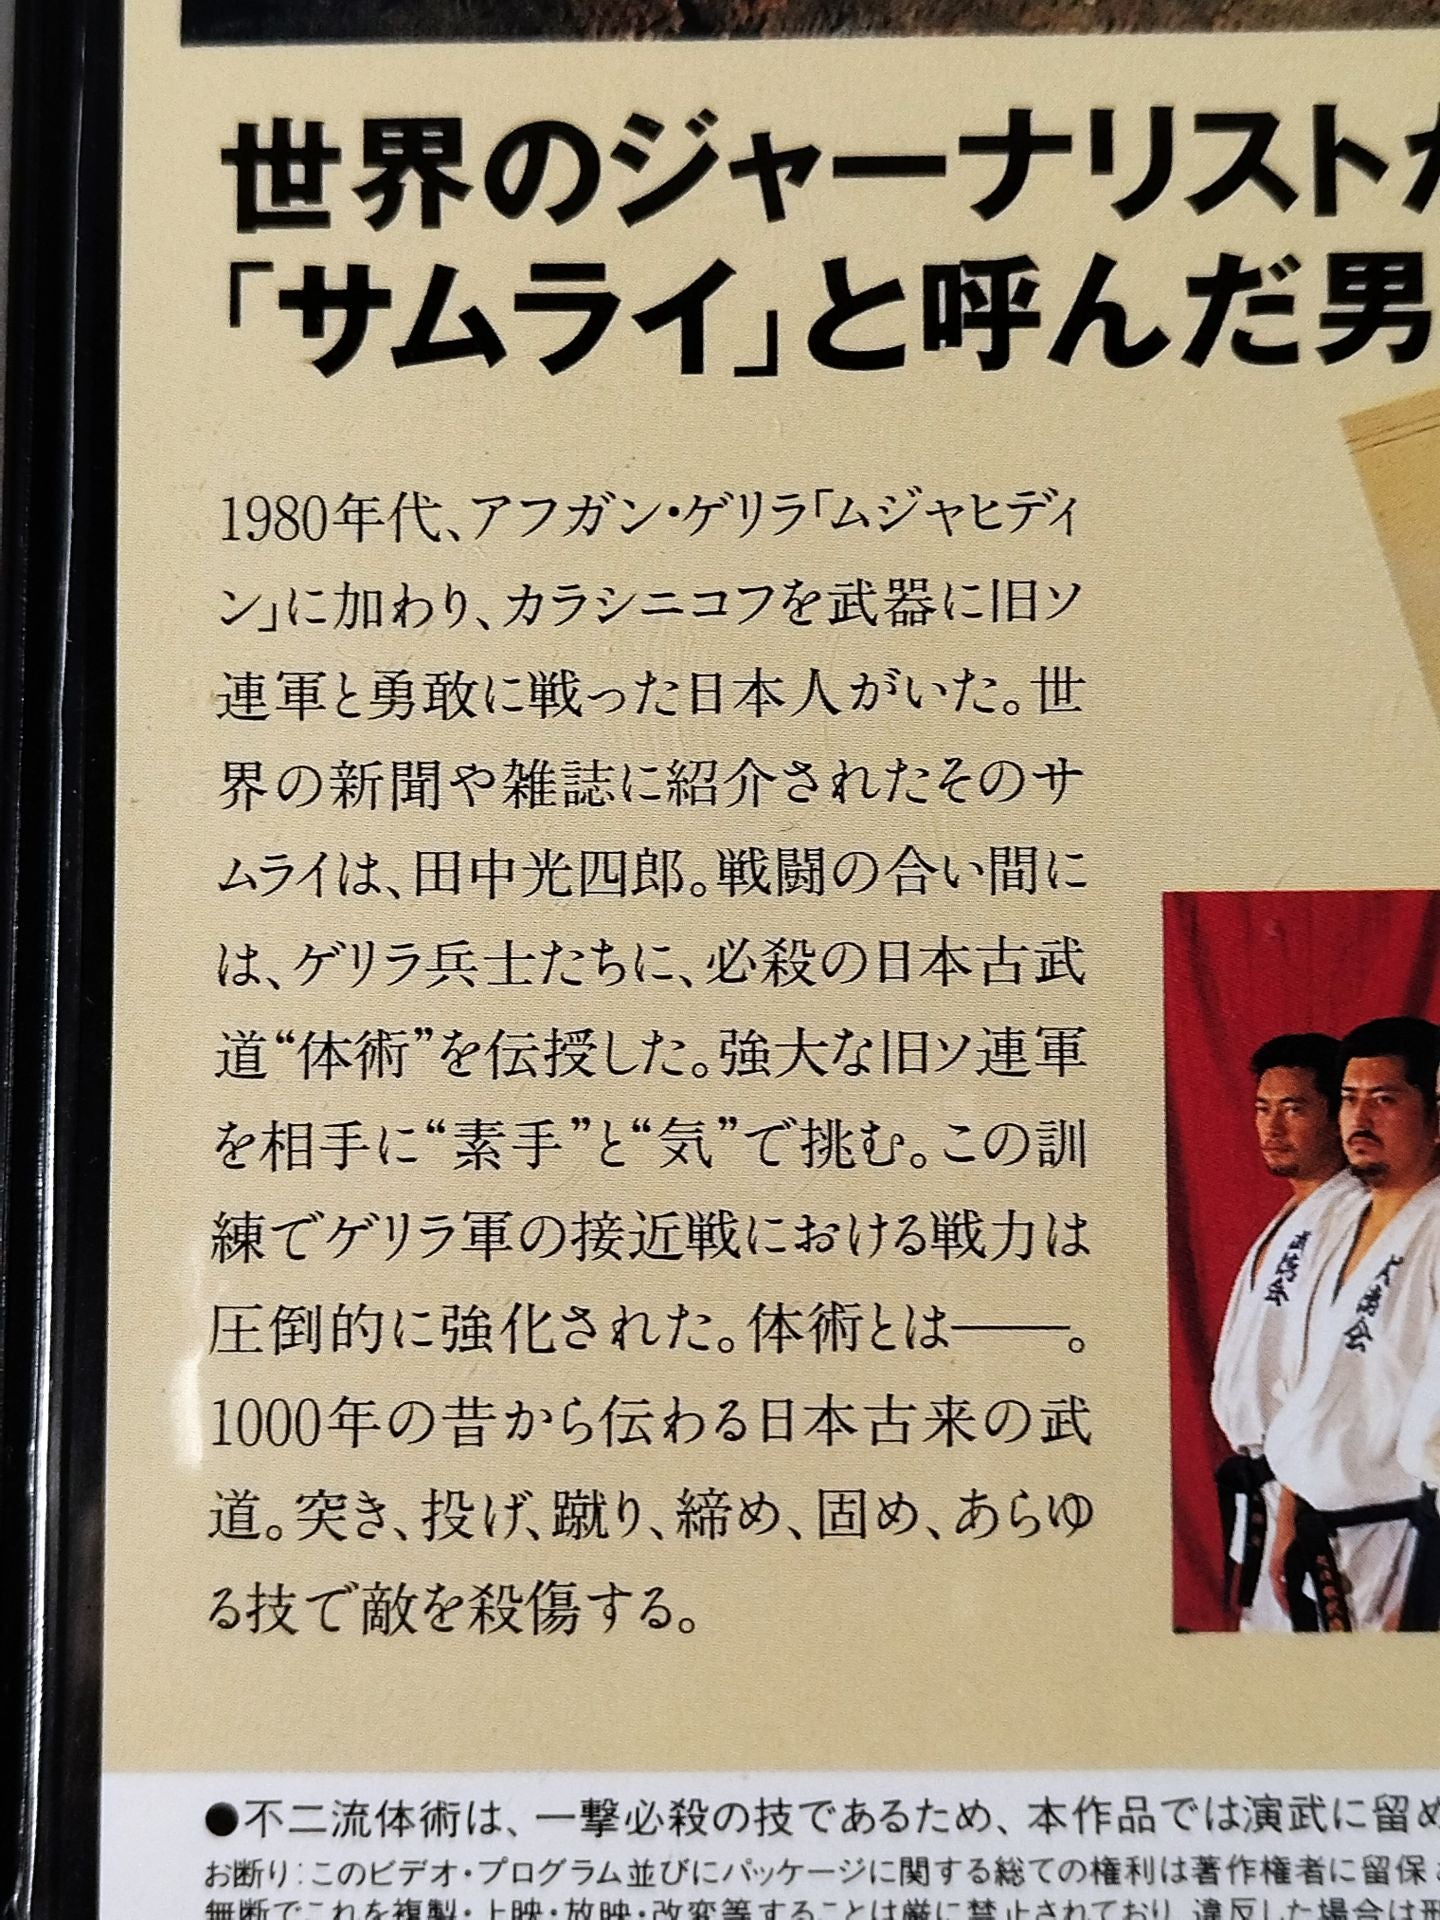 世界のジャーナリストが
「サムライ」と呼んだ男
1980年代、アフガン・ゲリラ「ムジャヒディ
ン」に加わり、カラシニコフを武器に旧ソ
連軍と勇敢に戦った日本人がいた。世
界の新聞や雑誌に紹介されたそのサ
ムライは、田中光四郎。戦闘の合い間に
は、ゲリラ兵士たちに、必殺の日本古武
道“体術”を伝授した。強大な旧ソ連軍
を相手に“素手”と“気”で挑む。この訓
練でゲリラ軍の接近戦における戦力は
圧倒的に強化された。体術とは――。
1000年の昔から伝わる日本古来の武
道。突き、投げ、蹴り、締め、固め、あらゆ
る技で敵を殺傷する。
●不二流体術は、一撃必殺の技であるため、本作品では演武に留め
お断り:このビデオ・プログラム並びにパッケージに関する総ての権利は著作権者に留保
無断でこれを複製・上映・放映・改変等することは厳に禁止されており、違反した場合は刑